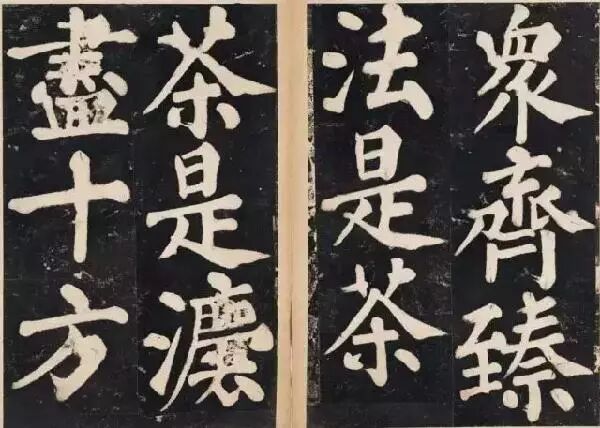 眾齊臻
法是茶
茶是灋
盡十方